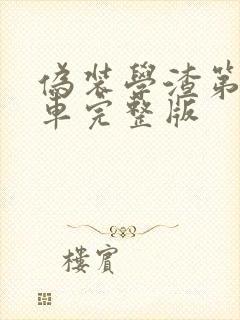 偽装學渣第
車完整版
樓賓